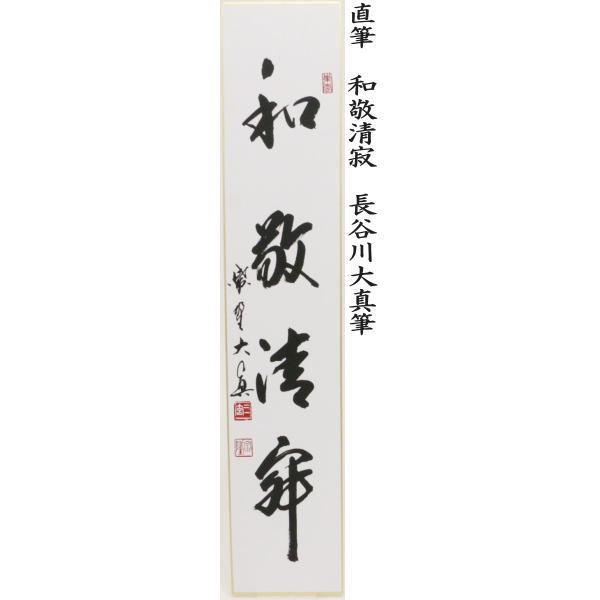 直筆　和敬清寂　長谷川大真筆
和敬清寂
紫野大真